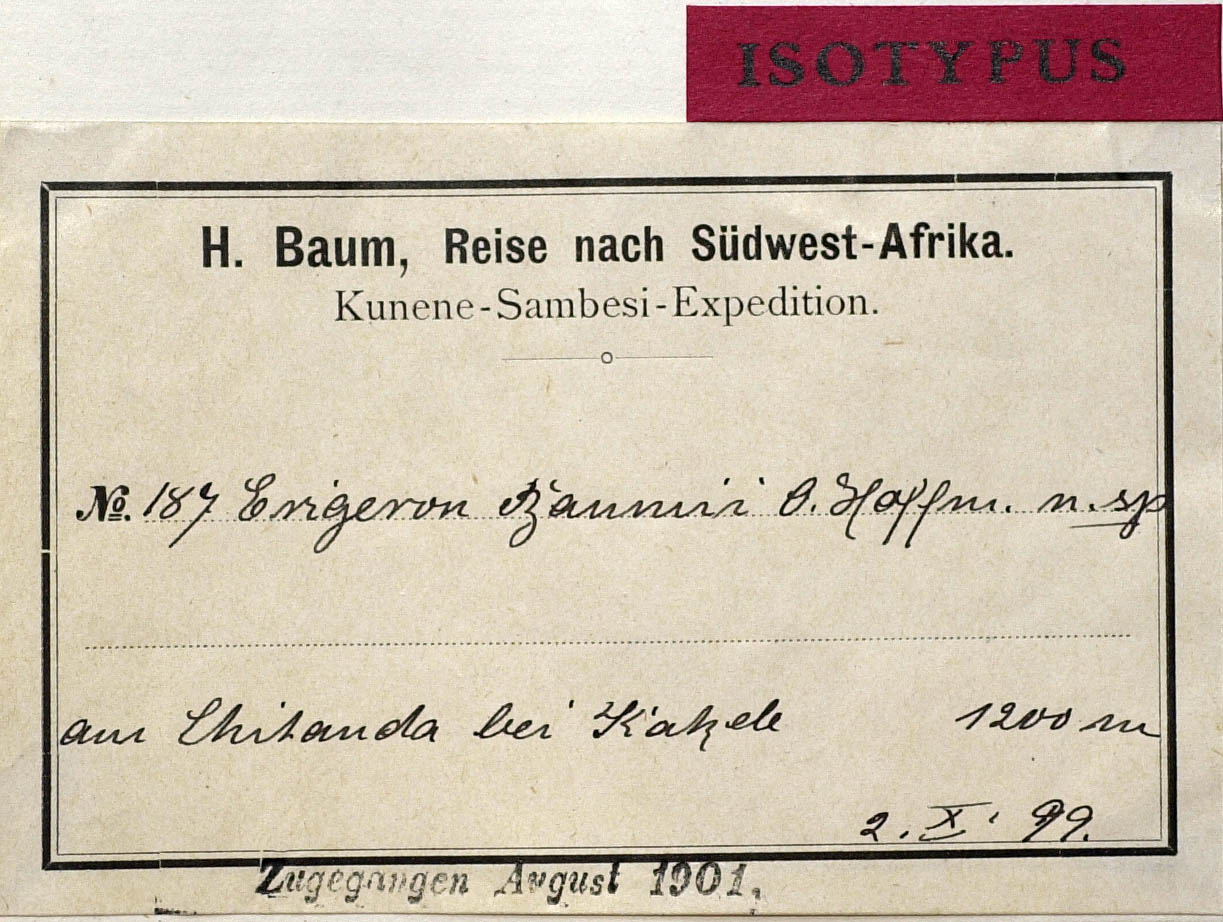 ISOTYPUS
H. Baum, Reise nach Südwest-Afrika.
Kunene-Sambesi-Expedition.
№. 187 Erigeron Baumii O. Hoffm. n. sp
am Chitanda bei Kakele 1200 m
2. X. 99.
Zugegangen August 1901.